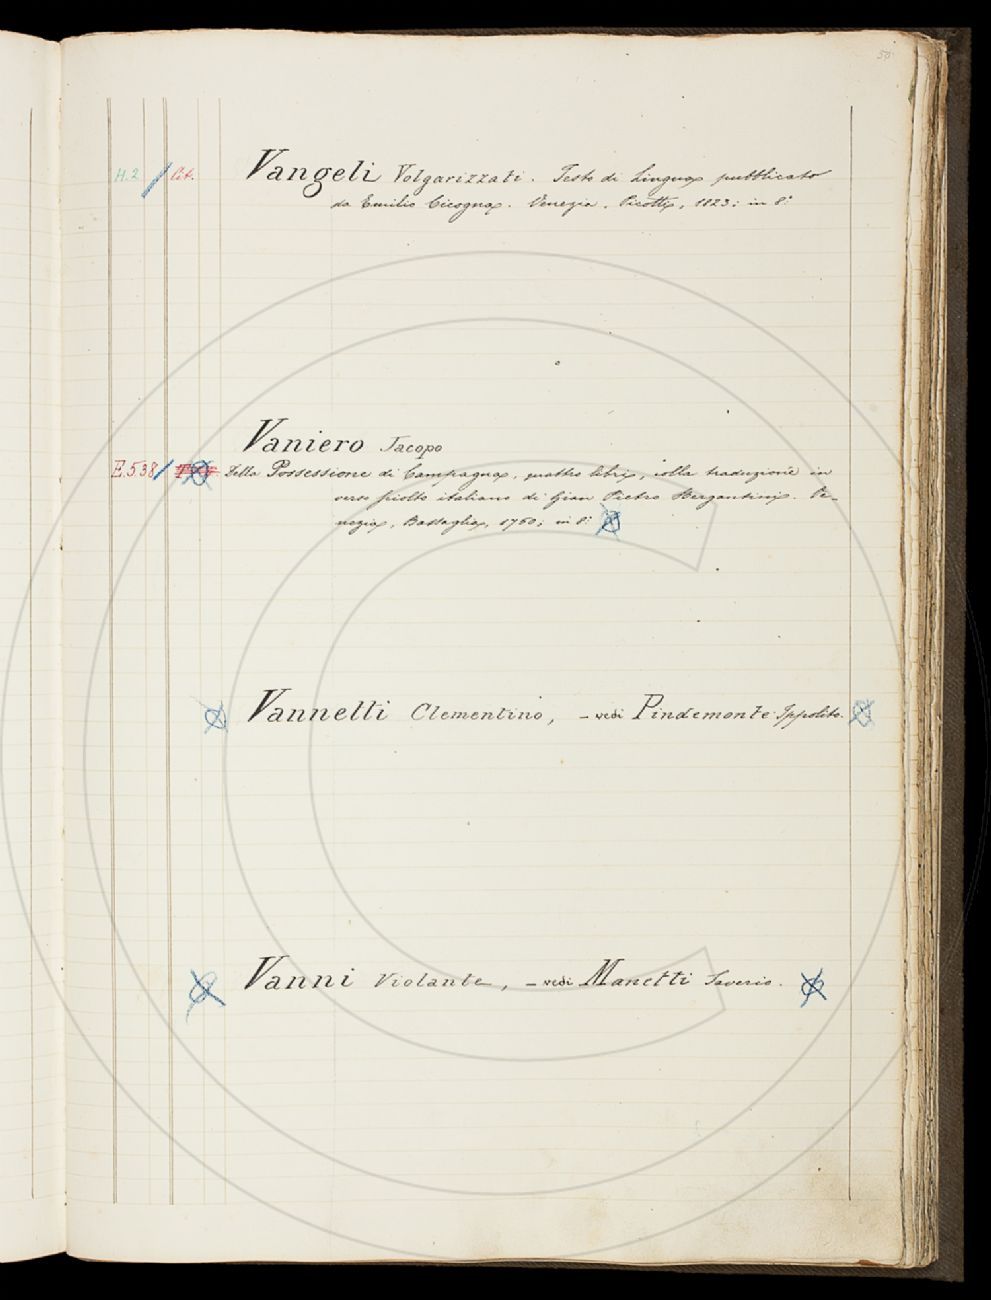 50
H. 2 / Let. Vangeli Volgarizzati. Testo di Lingua pubblicato
da Emilio Cicogna. Venezia, Picotti, 1823; in 8°
Vaniero Jacopo
E. 538 / Della Possessione di Campagna, quattro libri, colla traduzione in
verso sciolto italiano di Gian Pietro Bergantini. Ve-
nezia, Bassaglia, 1760; in 8°
Vannetti Clementino, - vedi Pindemonte Ippolito.
Vanni Violante, - vedi Manetti Saverio.